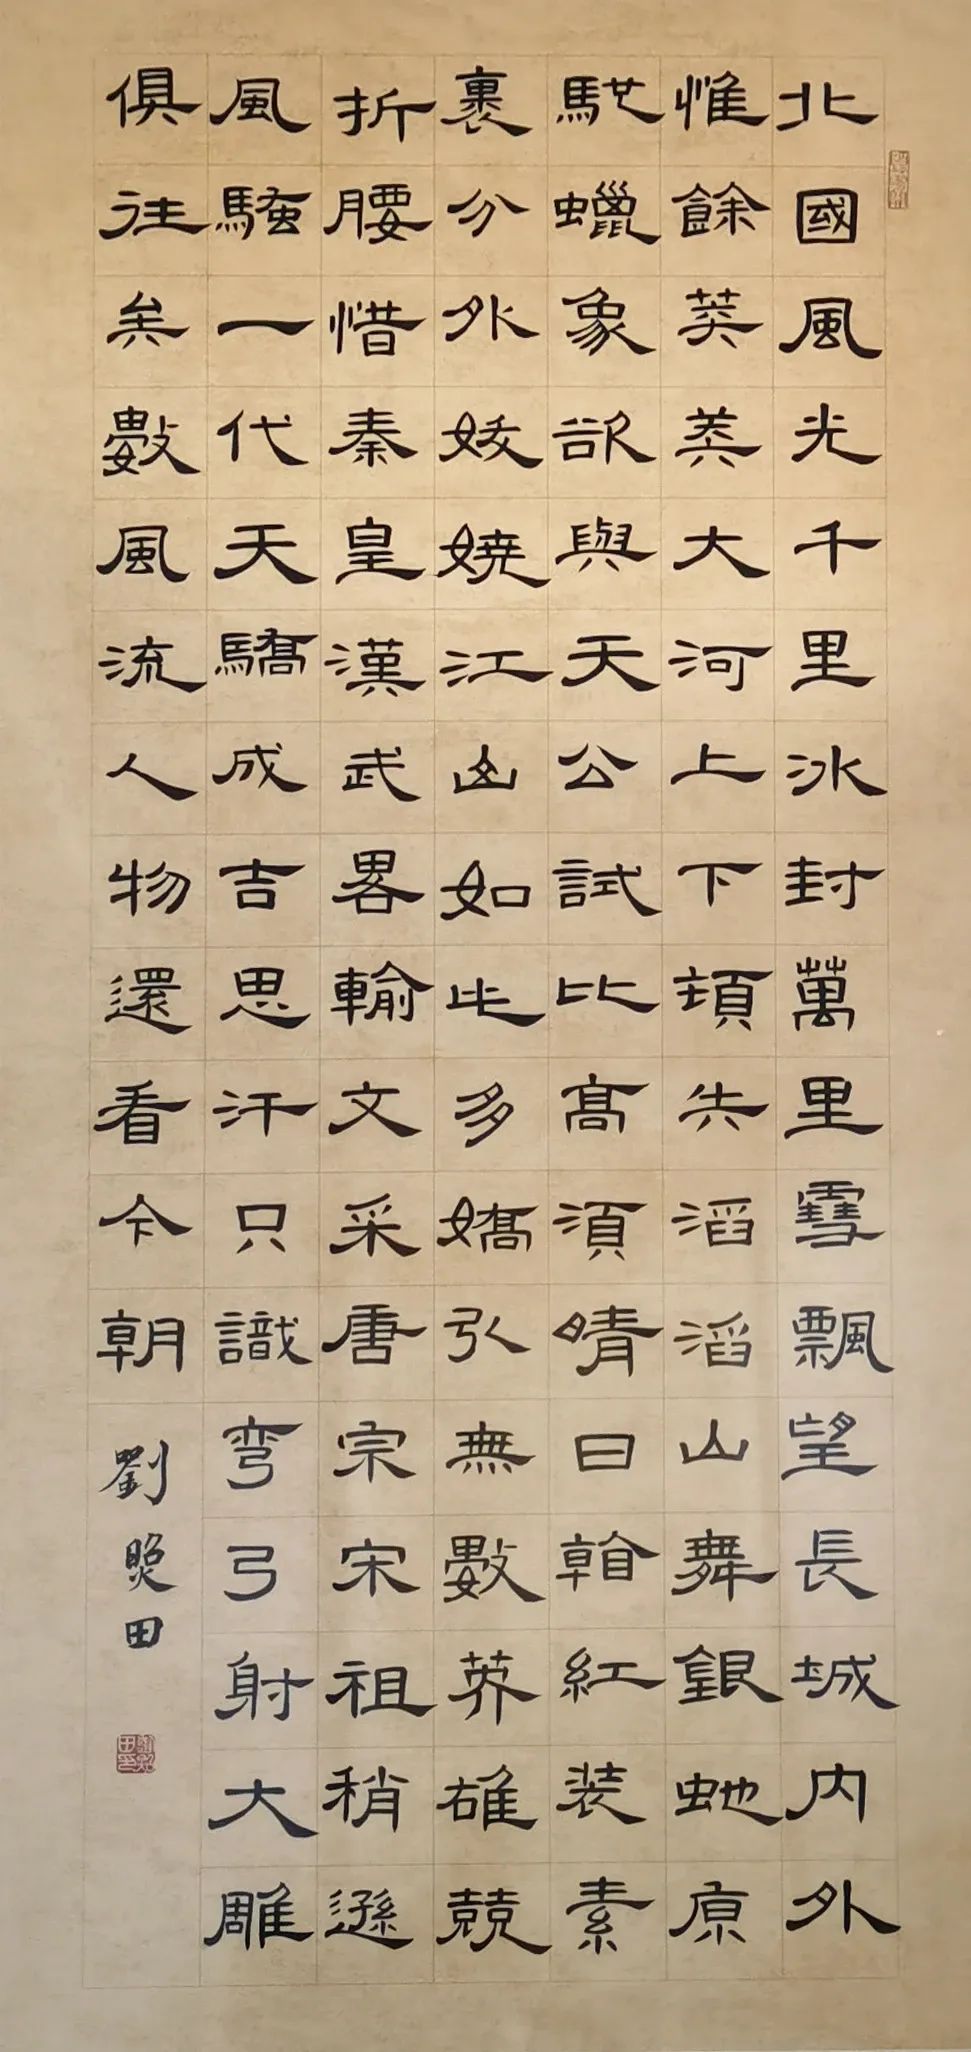 北國風光千里冰封萬里雪飄望長城內外
惟餘莽莽大河上下頓失滔滔山舞銀蛇原
馳蠟象欲與天公試比高須晴日看紅裝素
裹分外妖嬈江山如此多嬌引無數英雄競
折腰惜秦皇漢武畧輸文采唐宗宋祖稍遜
風騷一代天驕成吉思汗只識彎弓射大雕
俱往矣數風流人物還看今朝
劉田